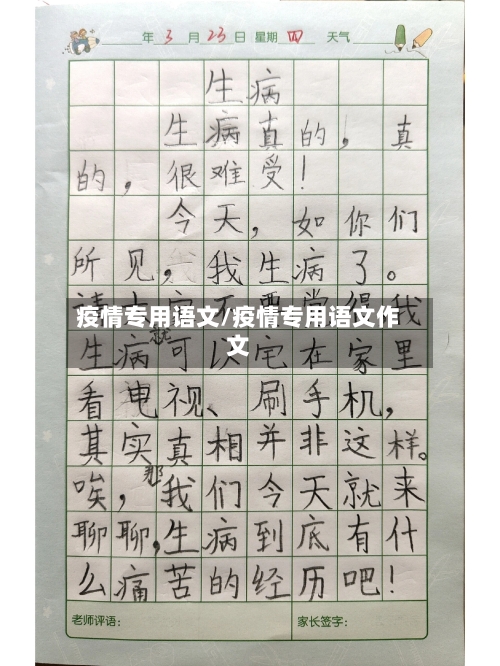 年 3 月 23 日 星期 四 天气
生病
生病真的，真
的，很难受！
今天，如你们
所见，我生病了。
疫情专用语文/疫情专用语文作
文
生病就可以宅在家里
看电视、刷手机，
其实真相并非这样。
唉，那我们今天就来
聊聊，生病到底有什
么痛苦的经历吧！
老师评语： 家长签字：